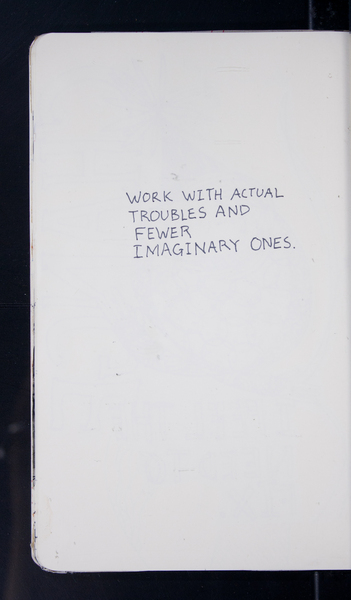 WORK WITH ACTUAL
TROUBLES AND
FEWER
IMAGINARY ONES.